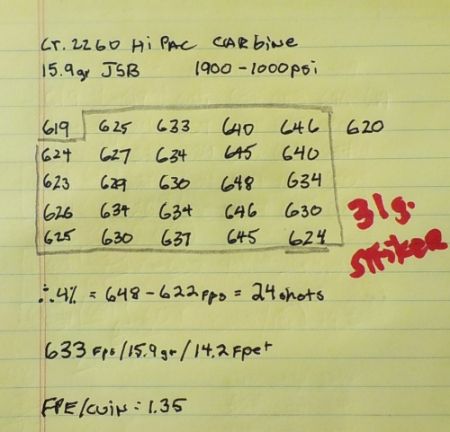 CT. 2260 Hi PAC CARbine
15.9gr JSB 1900-1000psi
619 625 633 640 646 620
624 627 634 645 640
623 629 630 648 634
626 634 634 646 630
625 630 637 645 624
31g.
striker
∴4% = 648-622fps = 24shots
633 fps/15.9gr/14.2 Fpet
FPE/cuin = 1.35